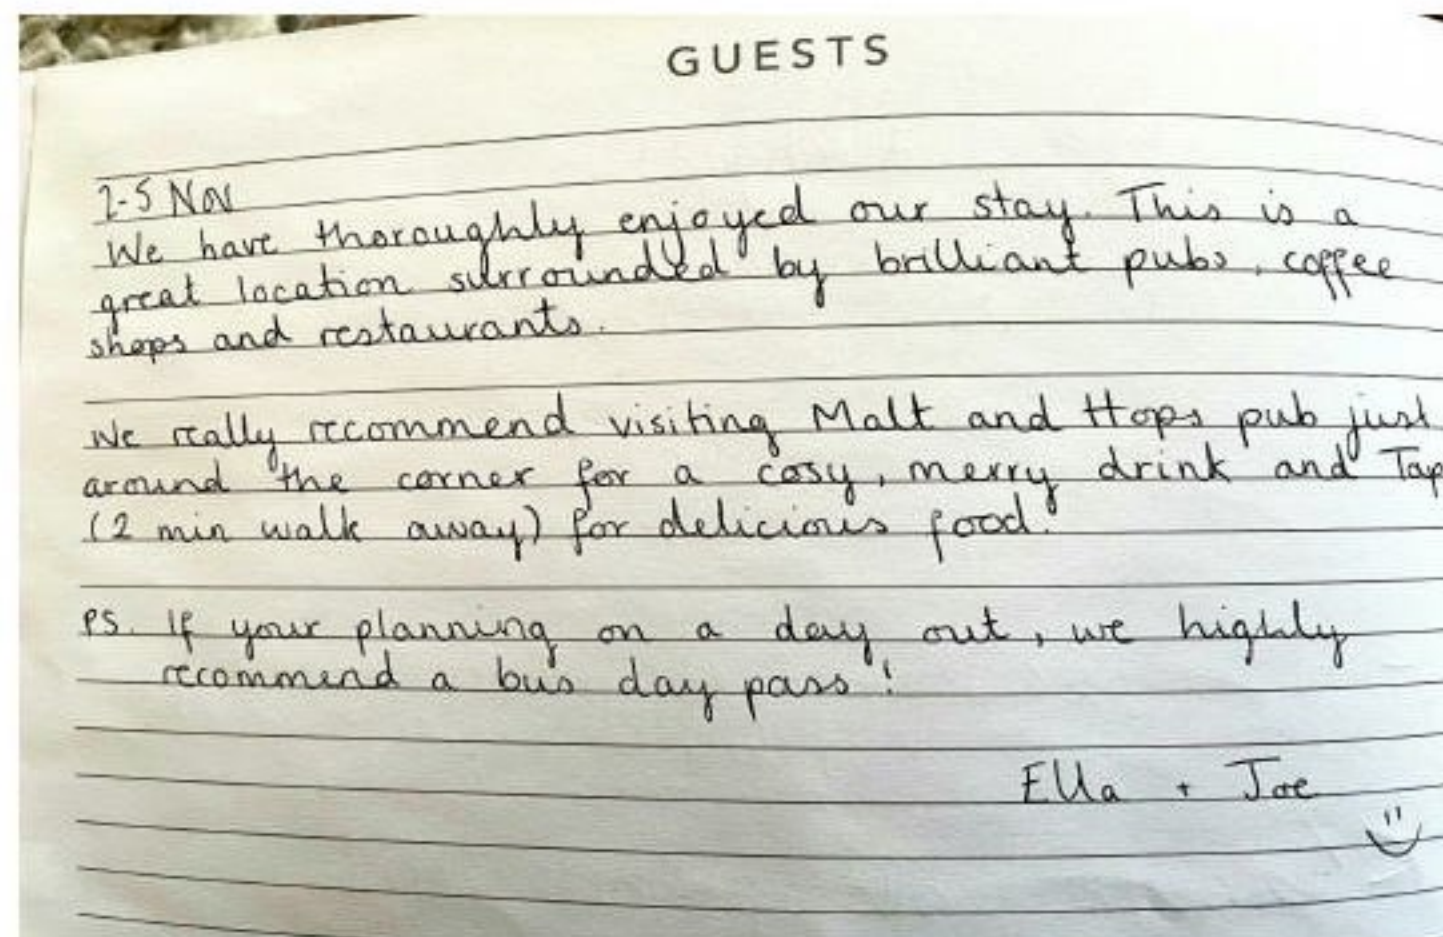 GUESTS
2-5 Nov
We have thoroughly enjoyed our stay. This is a
great location surrounded by brilliant pubs, coffee
shops and restaurants.
We really recommend visiting Malt and Hops pub just
around the corner for a cosy, merry drink and Tap
(2 min walk away) for delicious food!
PS. If your planning on a day out, we highly
recommend a bus day pass!
Ella + Joe